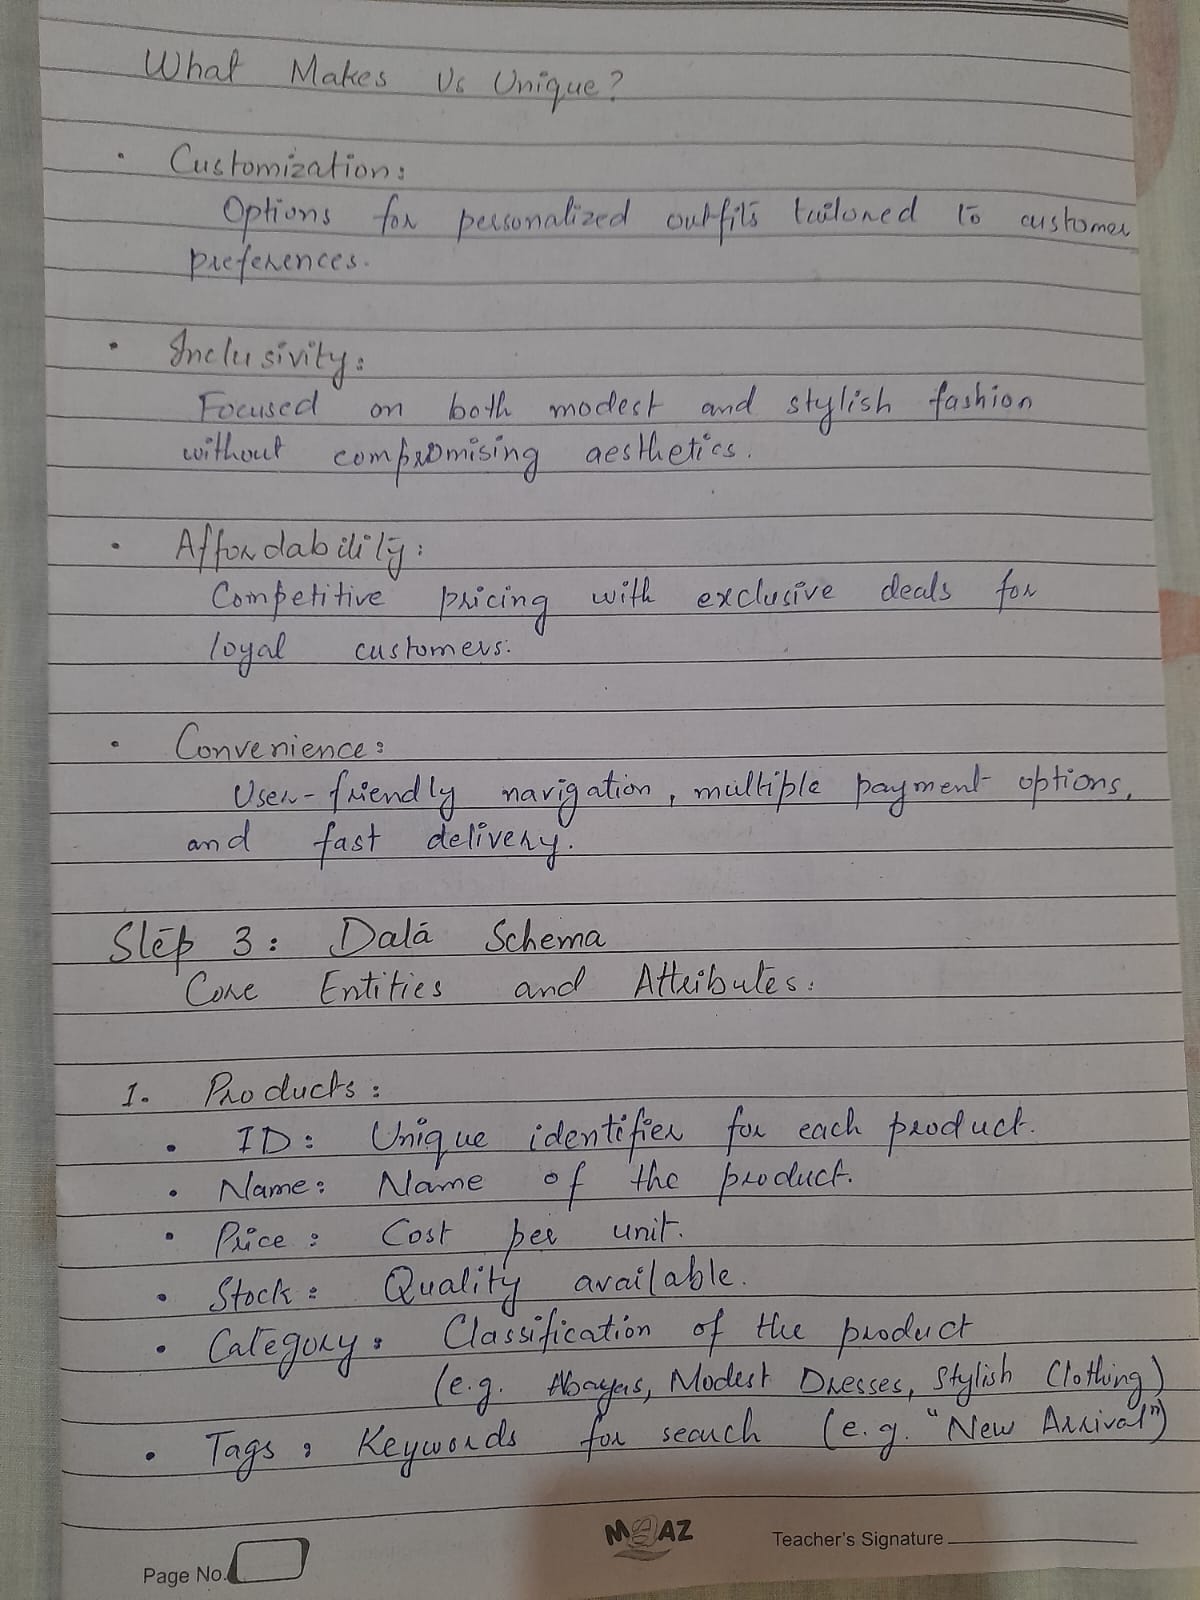 What Makes Us Unique?
• Customization:
Options for personalized outfits tailored to customer
preferences.
• Inclusivity:
Focused on both modest and stylish fashion
without compromising aesthetics.
• Affordability:
Competitive pricing with exclusive deals for
loyal customers.
• Convenience:
User-friendly navigation, multiple payment options,
and fast delivery.
Step 3: Data Schema
Core Entities and Attributes:
1. Products:
• ID: Unique identifier for each product.
• Name: Name of the product.
• Price: Cost per unit.
• Stock: Quality available.
• Category: Classification of the product
(e.g. Abayas, Modest Dresses, Stylish Clothing)
• Tags: Keywords for search (e.g. "New Arrival")
Page No.
MOAZ
Teacher's Signature